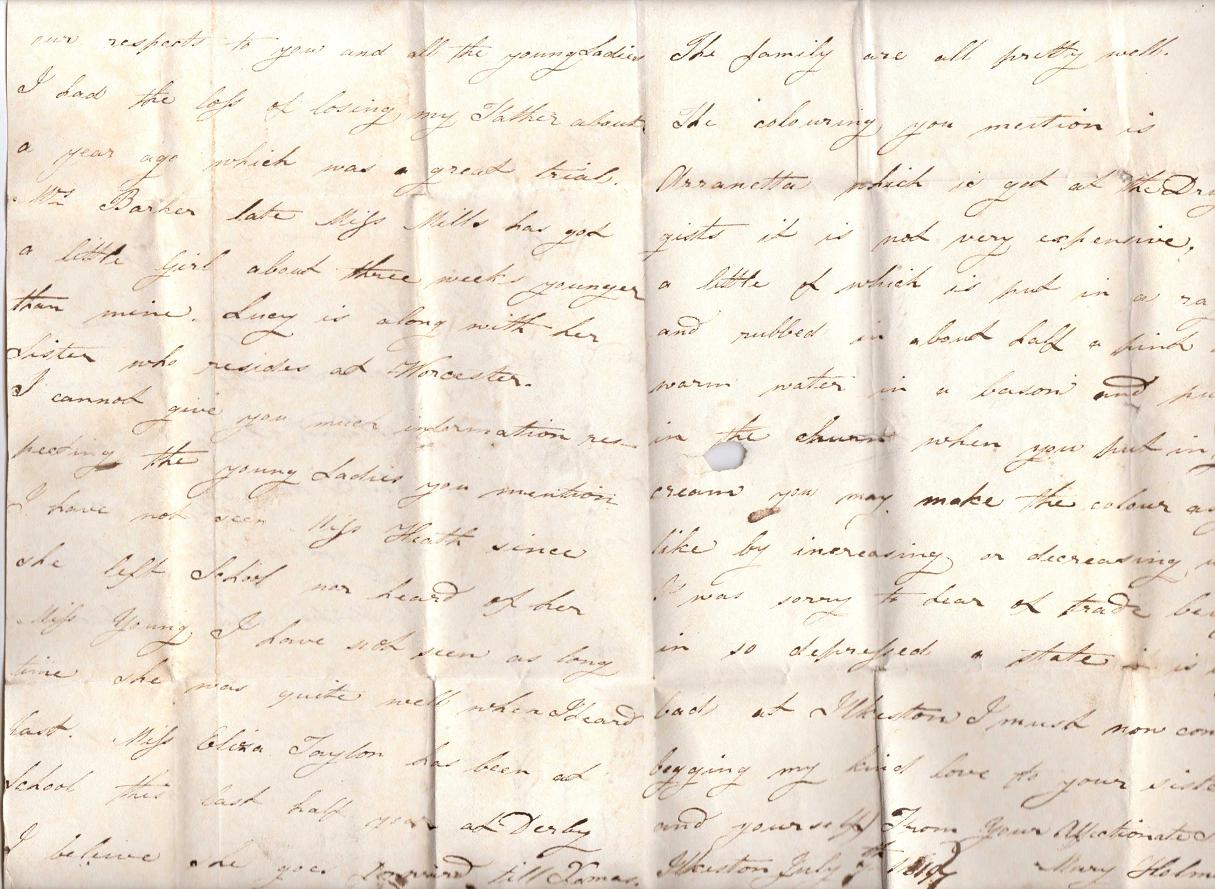 our respects to you and all the young Ladies
I had the loss of losing my Father about
a year ago which was a great trial.
Mrs Barker late Miss Mills has got
a little Girl about three weeks younger
than mine. Lucy is along with her
Sister who resides at Worcester.
I cannot give you much information res
pecting the young Ladies you mention
I have not seen Miss Heath since
she left School nor heard of her
Miss Young I have not seen as long
time she was quite well when I heard
last. Miss Eliza Taylor has been at
School this last half year at Derby
I beleive she goes forward till Xmas.
The family are all pretty well.
The colouring you mention is
Arranetta which is got at the Drug
gists it is not very expensive,
a little of which is put in a rag
and rubbed in about half a pint
warm water in a bason and pu
in the churn when you put in
cream you may make the colour as
like by increasing or decreasing
I was sorry to hear of trade bei
in so depressed a state it is
bad at Ilkeston I must now con
begging my kind love to your siste
and yourself From your Affectionate
Ilkeston July 1819 Mary Holm